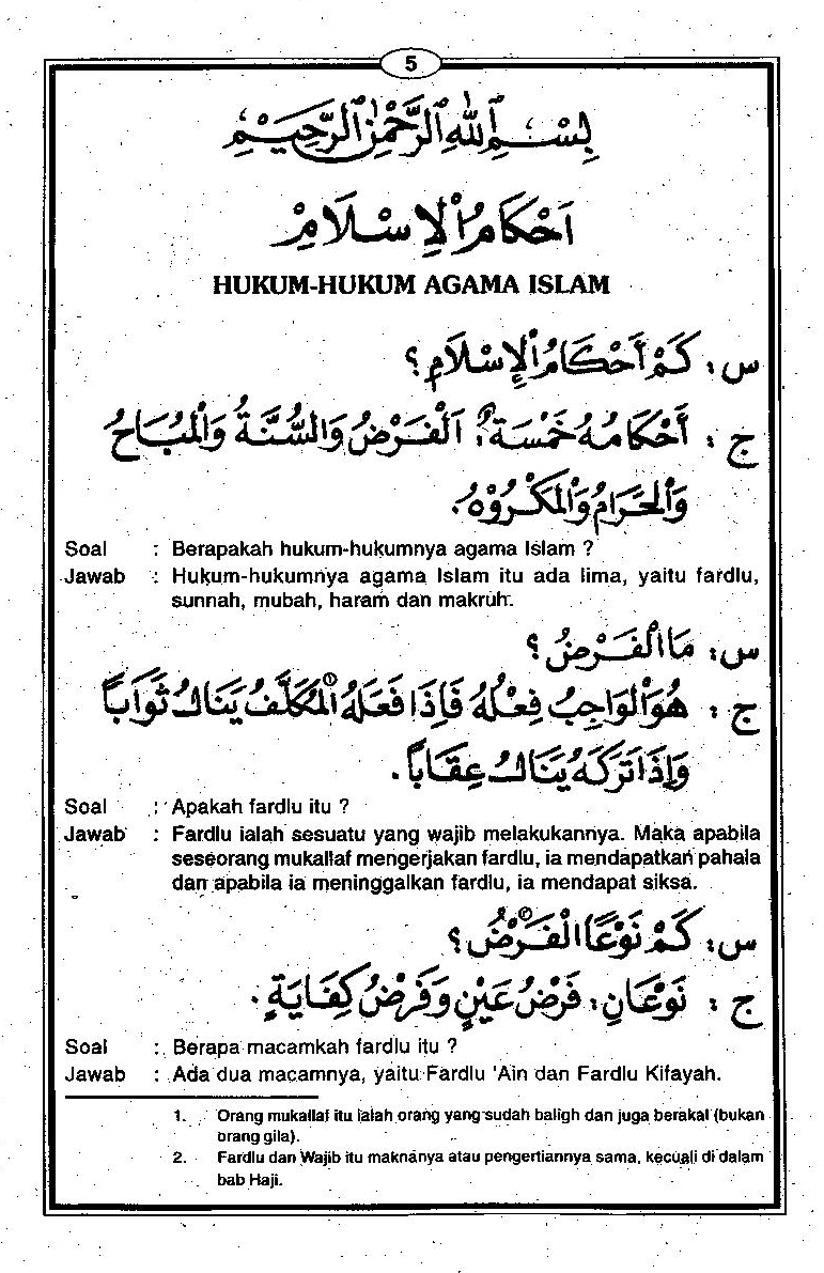 5
بِسْمِ اللهِ الرَّحْمٰنِ الرَّحِيْمِ
اَحْكَامُ الْاِسْلَامِ
HUKUM-HUKUM AGAMA ISLAM
س : كَمْ أَحْكَامُ الْإِسْلَامِ ؟
ج : أَحْكَامُهُ خَمْسَةٌ : اَلْفَرْضُ وَالسُّنَّةُ وَالْمُبَاحُ
وَالْحَرَامُ وَالْمَكْرُوْهُ .
Soal : Berapakah hukum-hukumnya agama Islam ?
Jawab : Hukum-hukumnya agama Islam itu ada lima, yaitu fardlu,
sunnah, mubah, haram dan makruh.
س : مَا الْفَرْضُ ؟
ج : هُوَ الْوَاجِبُ فِعْلُهُ فَإِذَا فَعَلَهُ الْمُكَلَّفُ يَنَالُ ثَوَاباً
وَإِذَا تَرَكَهُ يَنَالُ عِقَاباً .
Soal : Apakah fardlu itu ?
Jawab : Fardlu ialah sesuatu yang wajib melakukannya. Maka apabila
seseorang mukallaf mengerjakan fardlu, ia mendapatkan pahala
dan apabila ia meninggalkan fardlu, ia mendapat siksa.
س : كَمْ نَوْعًا الْفَرْضُ ؟
ج : نَوْعَانِ : فَرْضُ عَيْنٍ وَفَرْضُ كِفَايَةٍ .
Soal : Berapa macamkah fardlu itu ?
Jawab : Ada dua macamnya, yaitu Fardlu 'Ain dan Fardlu Kifayah.
1. Orang mukallaf itu ialah orang yang sudah baligh dan juga berakal (bukan
orang gila).
2. Fardlu dan Wajib itu maknanya atau pengertiannya sama, kecuali di dalam
bab Haji.